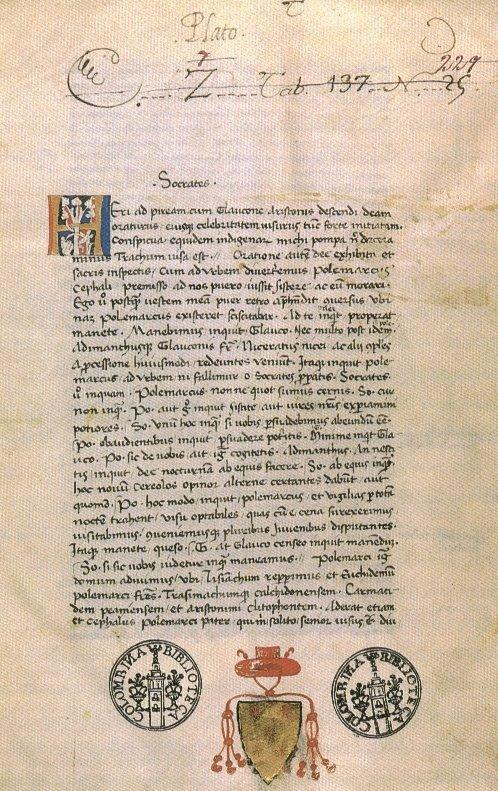 Plato.
Z Tab. 137 N 25
229
Socrates.
HEri ad piream cum Glaucone Aristonis descendi deam
oraturus eiusq celebritatem visurus tūc forte initiatam.
Conspicua equidem indigenar michi pompa n̄ decora
minus Trachium visa est Oratione autē dee exhibita et
sacris inspectis Cum ad urbem diverteremus Polemarcus
Cephali premisso ad nos puero iussit sistere ac eū morari.
Ego ū postq̄ vestem meā puer retro aphendit aversus ubi
nam Polemarcus existeret sciscitabar. Ad te inqt properat
manete. Manebimus inquit Glauco. Nec multo post idem
Adimanthusq Glauconis fr̄. Niceratus nicei ac alii
a pcessione huiusmodi redeuntes veniūt. Itaq inquit pole
marcus ad urbem ni fallimur o Socrates pperatis. Socrates
ū inquam. Polemarcus non ne quot sumus cernis. So. cur
non inq̄. Po. aut inquit sistite aut vires nr̄as expiamini
potiores. So. Unū hoc inq̄ si vobis psuadebimus abeundū eē.
Po. obaudientibus inquit psuadere potitis. Minime inqt Gla
uco. Po. sic de vobis aut cogitetis. Adimanthus. An nesci
tis inquit dee nocturna ab equis facere. So. ab equis inq̄
hoc novū cereolos opinor alterne certantes dabūt aut
quomō. Po. hoc modo inquit polemarcus et vigilias p totā
noctē trahent visu optabiles quas cū e cena surexerimus
visitabimus queniemusq pluribus iuvenibus disputantes.
Itaq manete queso. G. at Glauco censeo inquit manedū.
So. si sic vobis videtur inq̄ maneamus Polemarci
domum adivimus ubi Lisiachum repperimus et Euchidemū
polemarci frēs. Trasimachumq calchidonensem. Carmati
dem peamensem et aristonimi clitophontem. Aderat etiam
et Cephalus Polemarci pater qui m̄ solito senior visus ē diu
BIBLIOTECA COLOMBINA
BIBLIOTECA COLOMBINA